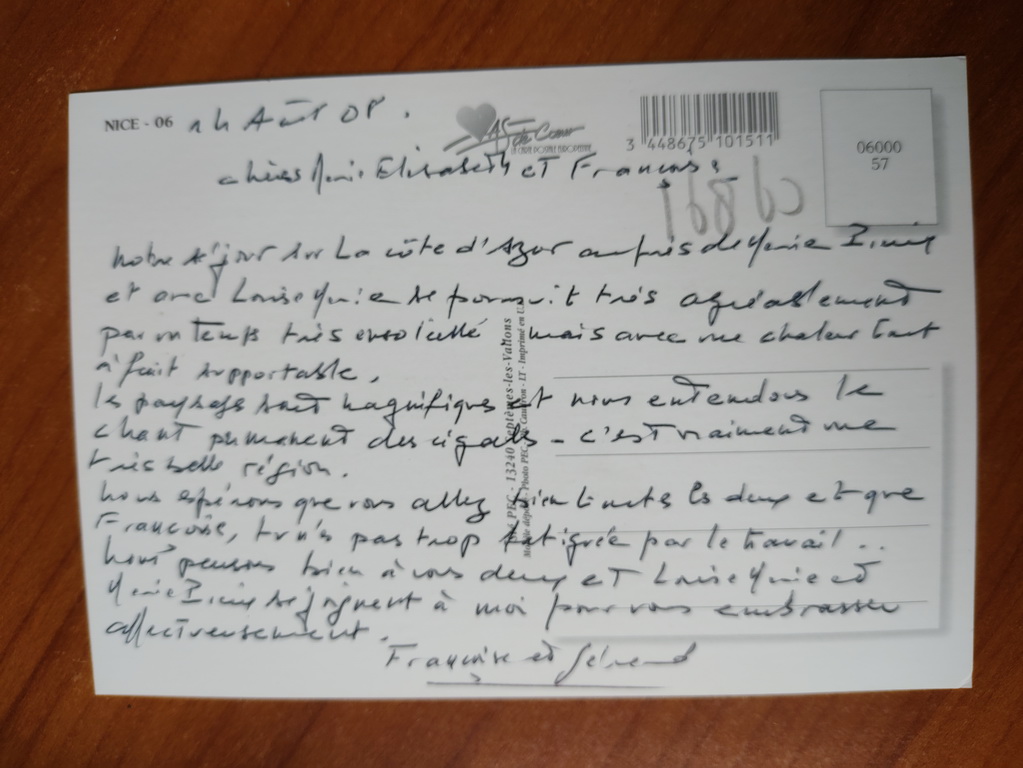 NICE - 06 14 Août 08.
AS de Cœur
LA CARTE POSTALE EUROPÉENNE
3 448675 101511
06000
57
chères Marie Elisabeth et Françoise
16860
Notre séjour sur la côte d'Azur auprès de Marie
et avec Louise Marie se poursuit très agréablement
par un temps très ensoleillé mais avec une chaleur tout
à fait supportable.
les paysages sont magnifiques et nous entendons le
chant permanent des cigales - c'est vraiment une
très belle région.
Nous espérons que vous allez bien toutes les deux et que
Françoise, tu n'es pas trop fatiguée par le travail ..
Nous pensons bien à vous deux et Louise Marie et
Marie se joignent à moi pour vous embrasser
affectueusement.
Françoise et Gérard
PEC - 13240 Septèmes-les-Vallons
Modèle déposé - Photo PEC - LT - Imprimé en U.E.